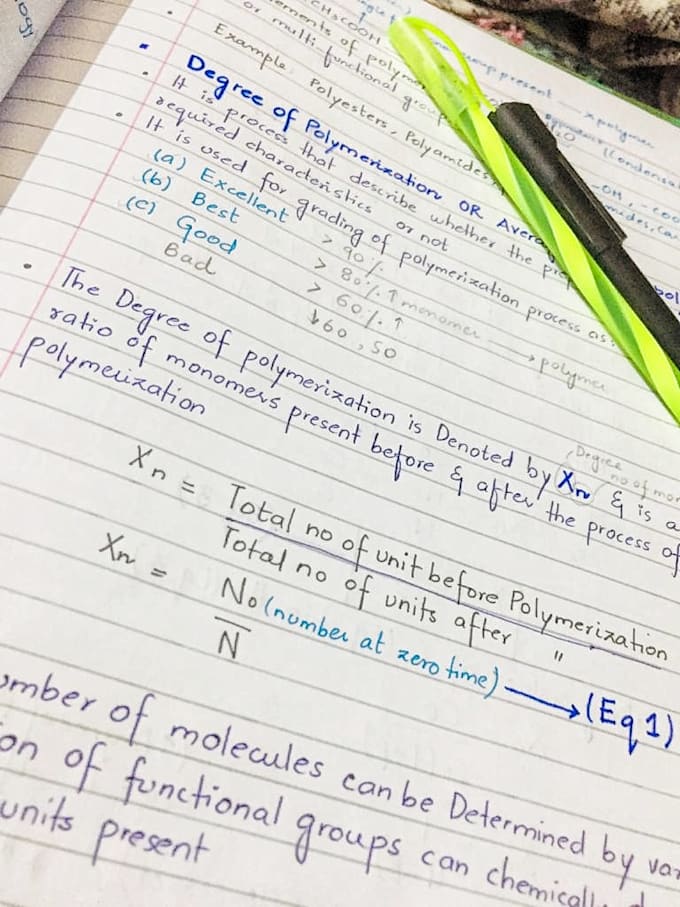 ogy
CH3COOH
ements of polyme
or multi functional group
Example Polyesters, Polyamides
Degree of Polymerization OR Avera
It is process that describe whether the pr
required characteristics or not
It is used for grading of polymerization process as:
(a) Excellent > 90%
(b) Best > 80% ↑ monomer → polymer
(c) Good > 60% ↑
Bad ↓60, 50
The Degree of polymerization is Denoted by Xn & is a
Degree
no of mon
ratio of monomers present before & after the process of
polymerization
Xn = Total no of unit before Polymerization
Total no of units after "
Xn = No (number at zero time) → (Eq 1)
N
umber of molecules can be Determined by var
on of functional groups can chemically
units present